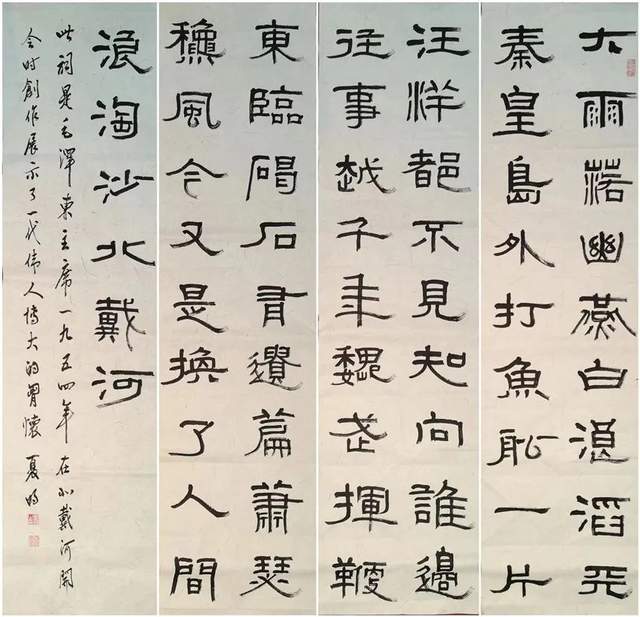 大雨落幽燕白浪滔天
秦皇島外打魚船一片
汪洋都不見知向誰邊
往事越千年魏武揮鞭
東臨碣石有遺篇蕭瑟
穐風今又是換了人間
浪淘沙北戴河
此詞是毛澤東主席一九五四年在北戴河開
会时創作展示了一代伟人博大的胸懷 夏